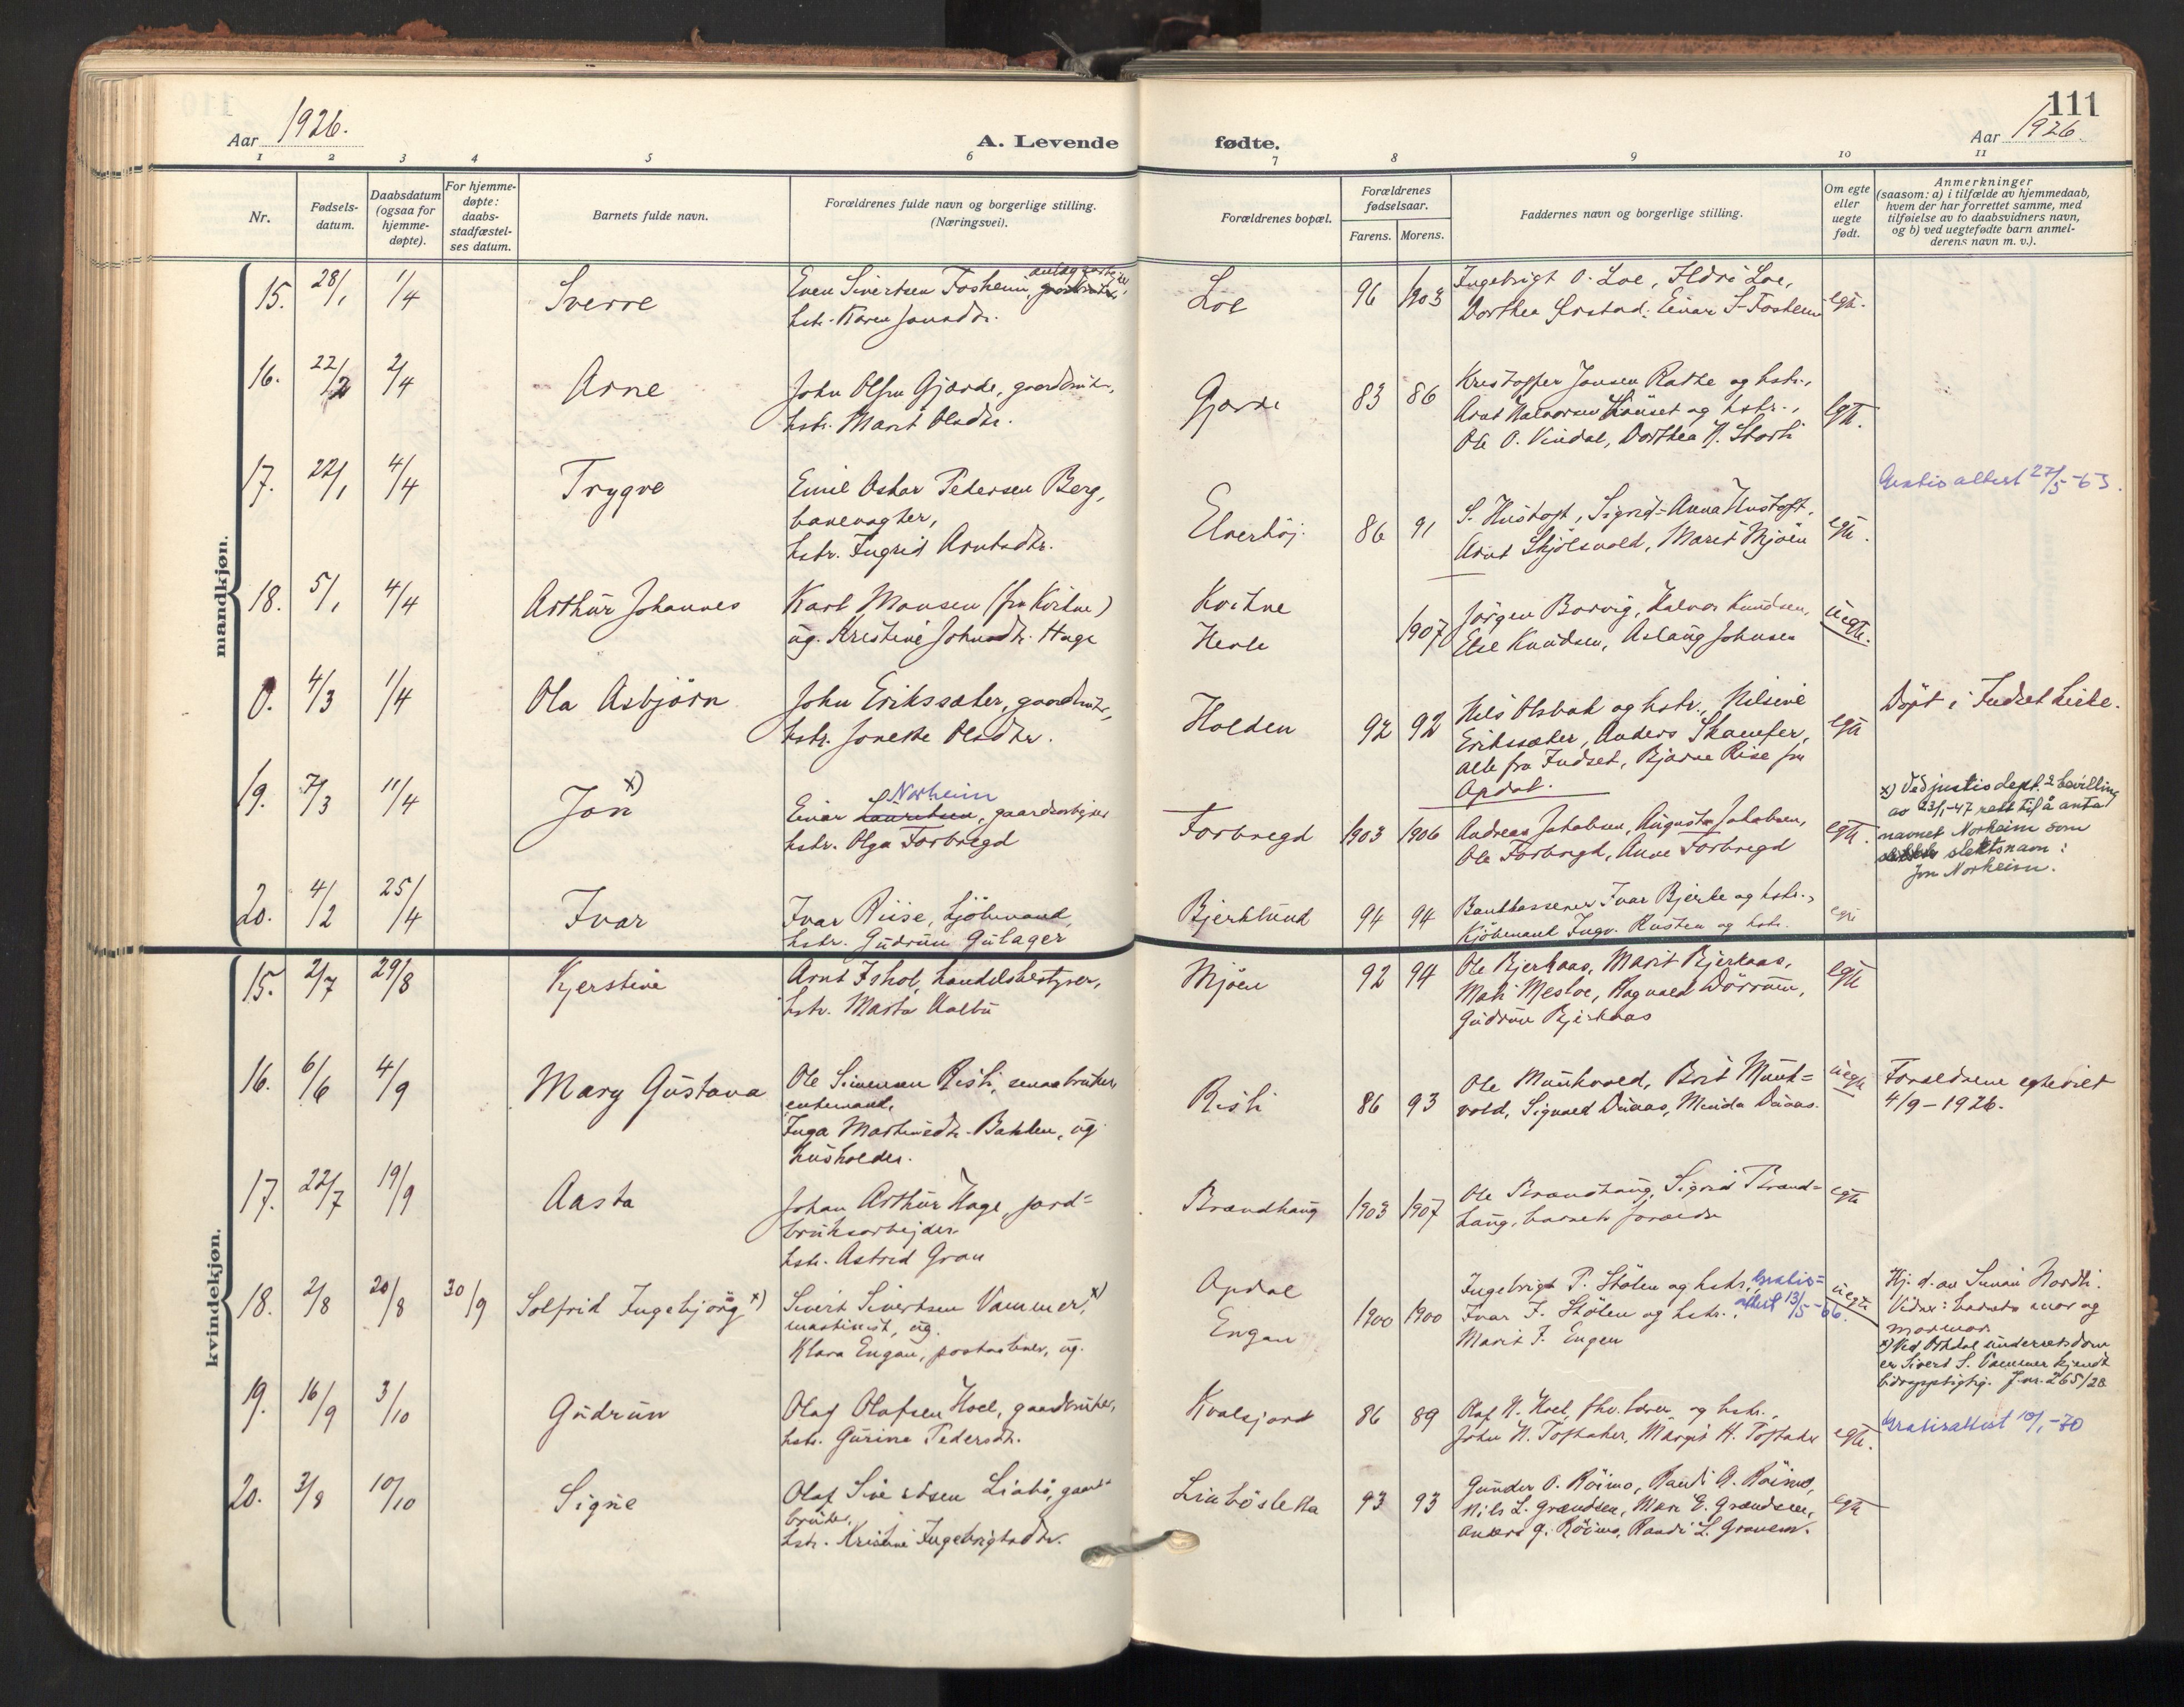 111
Aar 1926.
A. Levende
fødte.
Aar 1926
1 2 3 4 5 6 7 8 9 10 11
Nr.
Fødsels-
datum.
Daabsdatum
(ogsaa for
hjemme-
døpte).
For hjemme-
døpte:
daabs-
stadfæstel-
ses datum.
Barnets fulde navn.
Forældrenes fulde navn og borgerlige stilling.
(Næringsvei).
Forældrenes bopæl.
Forældrenes
fødselsaar.
Farens. Morens.
Faddernes navn og borgerlige stilling.
Om egte
eller
uegte
født.
Anmerkninger
(saasom: a) i tilfælde av hjemmedaab,
hvem der har forrettet samme, med
tilføielse av to daabsvidners navn,
og b) ved uegtefødte barn anmel-
derens navn m. v.).
mandkjøn.
15. 28/1 1/4 Sverre
Even Sivertsen Fosheim,
hstr. Karen Jonsdtr.
Loe 96 1903
Ingebrigt O. Loe, Ildri Loe,
Dorthea Ørstad, Einar S. Fosheim
egte.
16. 22/2 2/4 Arne
John Olsen Gjærde, gaardbruker,
hstr. Marit Olsdtr.
Gjærde 83 86
Kristoffer Jonsen Rathe og hstr.,
Arnt Halvorsen og hstr.,
Ole O. Vindal, Dorthea N. Storli
egte.
17. 22/1 4/4 Trygve
Emil Oskar Pedersen Berg,
banevogter,
hstr. Ingrid Arntsdtr.
Elverhöj. 86 91
S. Hustoft, Sigrid-Anna Hustoft,
Arnt Skjölsvold, Marit Mjöen
egte.
Gratis attest 27/5-63.
18. 5/1 4/4 Arthur Johannes
Karl Monsen (fra Kvikne)
ug. Kristine Johnsdtr. Hage
Kvikne
1907
Jörgen Borvig, Halvor Knudsen,
Else Knudsen, Aslaug Johnsen
uegte.
0. 4/3 1/4 Ola Asbjörn
John Erikssæter, gaardbruker,
hstr. Olsdtr.
Holden 92 92
Nils Olsbak og hstr., Nilsine
Erikssæter, Anders Skamfer,
alle fra Indset, Bjarne Rise fra
Opdal.
egte
Döpt i Indset kirke.
19. 7/3 11/4 Jon x)
Norheim
Einar Lauritsen, gaardsarbeider
hstr. Olga Forbregd
Forbregd 1903 1906
Andreas Jakobsen, Augusta Jakobsen,
Ole Forbregd, Anne Forbregd
egte.
x) Ved justisdept.s bevilling
av 23/1-47 rett til å anta
navnet Norheim som
slektsnavn:
Jon Norheim.
20. 4/2 25/4 Ivar
Ivar Riise, kjöbmand,
hstr. Gudrun Gulager
Bjerklund 94 94
Bankkasserer Ivar Bjerke og hstr.,
Kjöbmand Ingv. Rusten og hstr.
egte
kvindekjøn.
15. 2/7 29/8 Kjerstine
Arnt Ishol, handelsbestyrer,
hstr. Marta Aalbu
Mjöen 92 94
Ole Bjerkaas, Marit Bjerkaas,
Mali Mesloe, Ragnvald Dörrum,
Gudrun Bjerkaas
egte
16. 6/6 4/9 Mary Gustava
Ole Simensen Risli, smaabruker,
enkemand,
Inga Martinsdtr. Bakken, ug.
husholder.
Risli 86 93
Ole Munkvold, Brit Munk-
vold, Sigvald Duaas, Minda Duaas.
uegte
Forældrene egteviet
4/9-1926.
17. 22/7 19/9 Aasta
Johan Arthur Hage, jord-
bruksarbejder.
hstr. Astrid Gran
Brændhaug 1903 1907
Ole Brændhaug, Sigrid Brænd-
haug, barnets forældre
egte
18. 2/8 20/8 30/9 Solfrid Ingebjörg x)
Sivert Sivertsen Vammer, x)
maskinist, ug.
Klara Engan, postaabner, ug.
Opdal
Engan
1900 1900
Ingebrigt P. Stölen og hstr.,
Ivar J. Stölen og hstr.,
Marit J. Engen
Gratis-
attest 13/5-66.
uegte
Hj. d. av Nordli.
Vidner: barnets mor og
mormor
x) Ved Orkdal underretsdom
er Sivert S. Vammer kjendt
bidragspligtig. J.nr. 265/28
19. 16/9 3/10 Gudrun
Olaf Olafsen Hoel, gaardbruker,
hstr. Gurine Pedersdtr.
Kvalsjord 86 89
Olaf N. Hoel, fhv. lærer og hstr.,
John H. Toftaker, Margit H. Toftaker
egte.
Gratisattest 10/1-70
20. 3/8 10/10 Signe
Olaf Sivertsen Liabö, gaard-
bruker,
hstr. Kristine Ingebrigtsdtr.
Liabösletta 93 93
Gunder O. Röimo, Randi A. Röimo,
Nils L. Grændsen, Mari E. Grændsen,
Anders G. Röimo, Randi L. Gravem.
egte